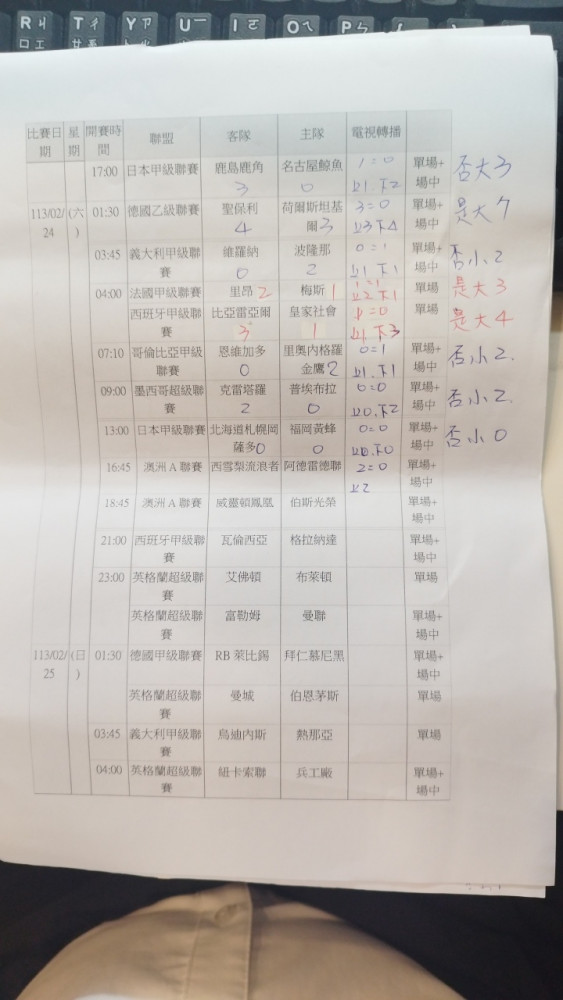 R ㄐ T ㄔ Y ㄗ U ㄧ I ㄛ O ㄟ P ㄣ
口 廿
比賽日期 星期 開賽時間 聯盟 客隊 主隊 電視轉播
17:00 日本甲級聯賽 鹿島鹿角 名古屋鯨魚 1=0 單場+場中 否大3
3 0 上1.下2
113/02/24 (六) 01:30 德國乙級聯賽 聖保利 荷爾斯坦基爾 3=0 單場+場中 是大7
4 3 上3下4
03:45 義大利甲級聯賽 維羅納 波隆那 0=1 單場+場中 否小2
0 2 上1下1
04:00 法國甲級聯賽 里昂 2 梅斯 1 1=1 單場 是大3
上2下1
西班牙甲級聯賽 比亞雷亞爾 皇家社會 1=0 單場 是大4
3 1 上1下3
07:10 哥倫比亞甲級聯賽 恩維加多 里奧內格羅金鷹 0=1 單場+場中 否小2.
0 2 上1.下1
09:00 墨西哥超級聯賽 克雷塔羅 普埃布拉 0=0 單場+場中 否小2.
2 0 上0.下2
13:00 日本甲級聯賽 北海道札幌岡薩多 福岡黃蜂 0=0 單場+場中 否小0
0 0 上0.下0
16:45 澳洲 A 聯賽 西雪梨流浪者 阿德雷德聯 2=0 單場+場中
上2
18:45 澳洲 A 聯賽 威靈頓鳳凰 伯斯光榮 單場+場中
21:00 西班牙甲級聯賽 瓦倫西亞 格拉納達 單場+場中
23:00 英格蘭超級聯賽 艾佛頓 布萊頓 單場
英格蘭超級聯賽 富勒姆 曼聯 單場+場中
113/02/25 (日) 01:30 德國甲級聯賽 RB 萊比錫 拜仁慕尼黑 單場+場中
英格蘭超級聯賽 曼城 伯恩茅斯 單場
03:45 義大利甲級聯賽 烏迪內斯 熱那亞 單場
04:00 英格蘭超級聯賽 紐卡索聯 兵工廠 單場+場中